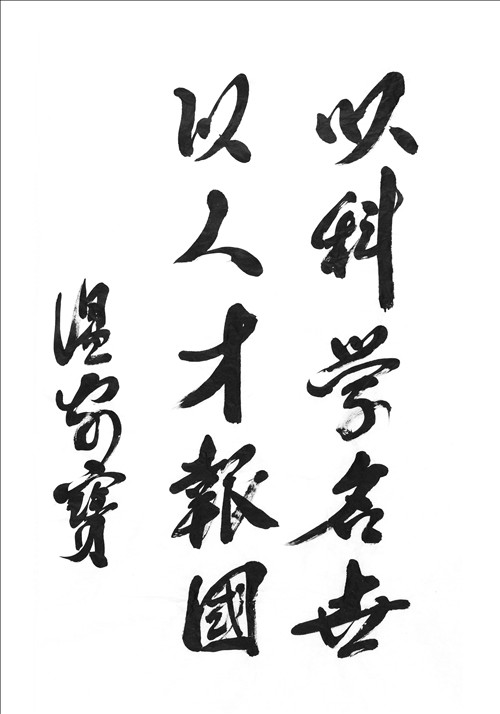 以科学名世
以人才報國
温家寶